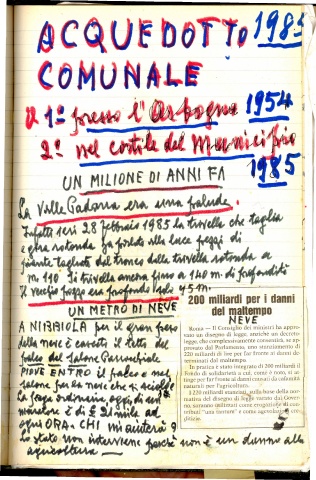 ACQUEDOTTO 1985
COMUNALE
1º presso l'Arbogna 1954
2º nel cortile del Municipio
1985
UN MILIONE DI ANNI FA
La Valle Padana era una palude.
Infatti ieri 28 Febbraio 1985 la trivella che taglia
e gira rotonda ha portato alla luce pezzi di
piante tagliate dal tronco dalla trivella rotonda a
m. 110. Si trivella ancora fino a 140 m. di profondità
Il vecchio pozzo era profondo 45 m.
UN METRO DI NEVE
A NIBBIOLA per il gran peso
della neve è caduto il tetto del
palco del Salone Parrocchiale
PIOVE ENTRO il palco e nel
salone per la neve che si scioglie
La paga ordinaria oggi di un
muratore è di £ 21 mila ad
ogni ORA - CHI mi aiuterà?
Lo Stato non interviene perché non è un danno alla
agricoltura
200 miliardi per i danni
del maltempo
NEVE
Roma — Il Consiglio dei ministri ha approvato un disegno di legge, anziché un decreto legge, che complessivamente consentirà, se approvato dal Parlamento, uno stanziamento di 220 miliardi di lire per far fronte ai danni determinati dal maltempo.
In pratica è stato integrato di 200 miliardi il fondo di solidarietà a cui, come è noto, si attinge per far fronte ai danni causati da calamità naturali per l'agricoltura.
I 220 miliardi stanziati, sulla base della normativa del disegno di legge varato dal Governo, saranno utilizzati come erogazioni di contributi "una tantum" e come agevolazioni creditizie.